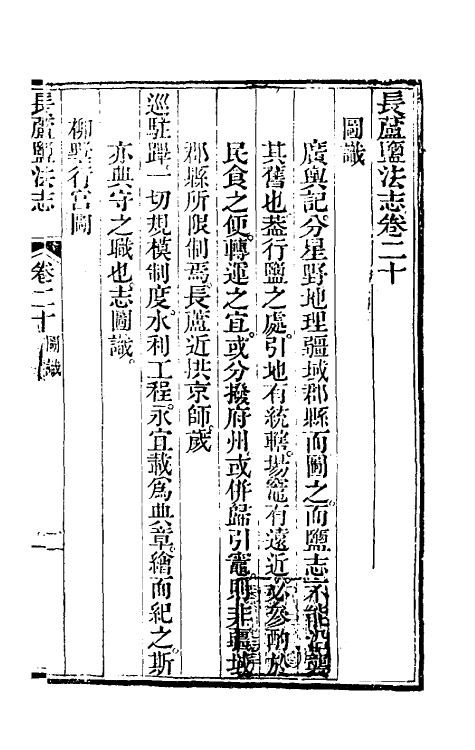 長蘆鹽法志卷二十
圖識
廣輿記分星野地理疆域郡縣而圖之而鹽志不能沿襲
其舊也蓋行鹽之處引地有統轄場竈有遠近必參酌於
民食之便轉運之宜或分撥府州或併歸引竈則非疆域
郡縣所限制焉長蘆近拱京師歲
巡駐蹕一切規模制度水利工程永宜載為典章繪而紀之斯
亦典守之職也志圖識
柳墅行宮圖
長蘆鹽法志
卷二十 圖識
一